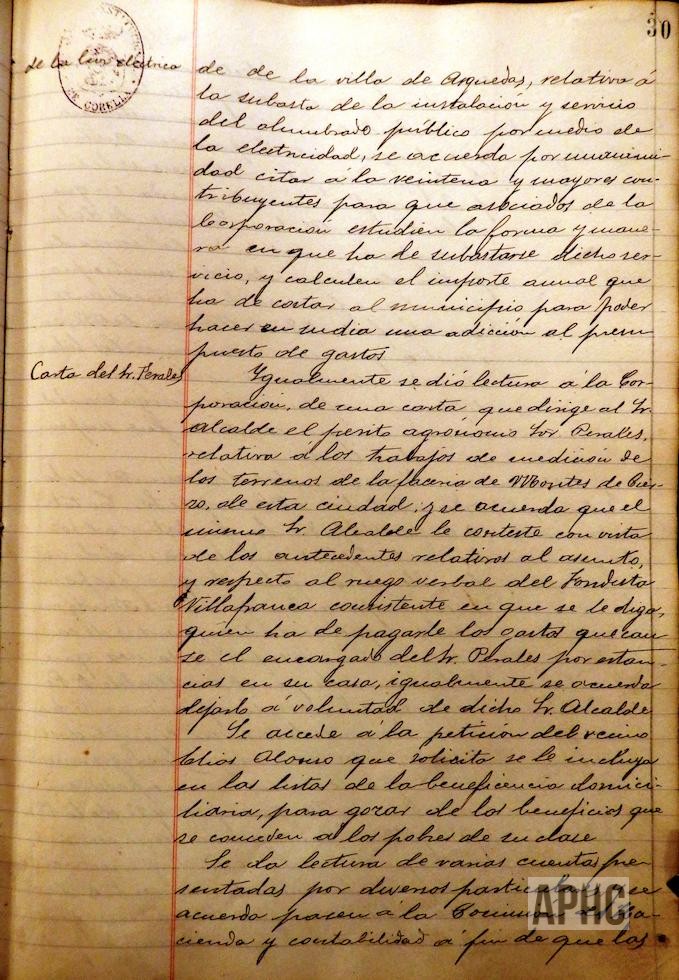 30
DE CORELLA
de la luz electrica
de de la villa de Arguedas, relativa á
la subasta de la instalacion y servicio
del alumbrado público por medio de
la electricidad, se acuerda por unanimi-
dad citar á la veintena y mayores con-
tribuyentes para que asociados de la
Corporacion estudien la forma y mane-
ra en que ha de subastarse dicho ser-
vicio, y calculen el importe anual que
ha de costar al municipio para poder
hacer en su dia una adicion al presu-
puesto de gastos
Carta del Sr. Perales
Igualmente se dió lectura á la Cor-
poración, de una carta que dirige al Sr.
Alcalde el perito agrónomo Sor. Perales,
relativa á los trabajos de medición de
los terrenos de la faceria de Montes de Cier-
zo, de esta ciudad; y se acuerda que el
mismo Sr. Alcalde le conteste con vista
de los antecedentes relativos al asunto,
y respecto al ruego verbal del Fondista
Villafranca consistente en que se le diga,
quien ha de pagarle los gastos que cau
se el encargado del Sr. Perales por estan-
cias en su casa, igualmente se acuerda
dejarlo á voluntad de dicho Sr. Alcalde
Se accede á la petición del vecino
Elias Alonso que solicita se le incluya
en las listas de la beneficencia domici-
liaria, para gozar de los beneficios que
se conceden á los pobres de su clase
Se da lectura de varias cuentas pre-
sentadas por diversos particulares y se
acuerda pasen á la Comision de Ha-
cienda y contabilidad á fin de que las
APHC